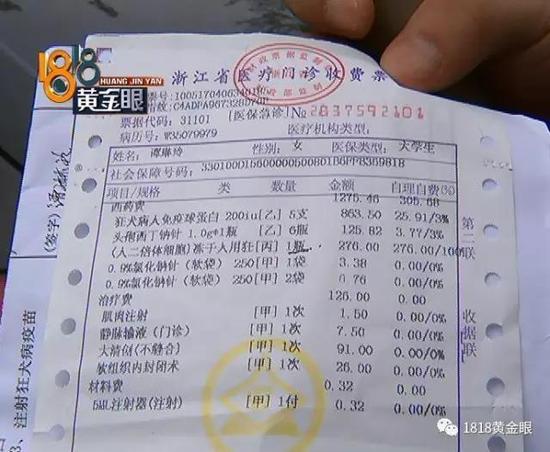 1818
HUANG JIN YAN
黄金眼
浙江省医疗门诊收费票
No 2837592101
票据代码: 31101 [医保急诊]
病历号: W35079979 医疗机构类型:
姓名: 谭琳玲 性别: 女 医保类型: 大学生
社会保障号码:
项目/规格 类 数量 金额 自理自费(%)
西药费 1275.46 305.68
狂犬病人免疫球蛋白 200iu[乙] 5支 863.50 25.91/3%
头孢西丁钠针 1.0g*1瓶 [乙] 6瓶 125.82 3.77/3%
(人二倍体细胞)冻干人用狂[丙] 1瓶 276.00 276.00/100
0.9%氯化钠针 (软袋) 250[甲] 1袋 3.38 0.00/0%
0.9%氯化钠针 (软袋) 250[甲] 2袋 6.76 0.00/0%
治疗费 126.00 0.00
肌肉注射 [甲] 1次 1.50 0.00/0%
静脉输液(门诊) [甲] 1次 7.50 0.00/0%
大清创(不缝合) [甲] 1次 91.00 0.00/0%
软组织内封闭术 [甲] 1次 26.00 0.00/0%
材料费 0.32 0.00
5ML注射器(注射) [甲] 1付 0.32 0.00/0%
第二联
收据联
(签字)
3、注射狂犬病疫苗
1818黄金眼